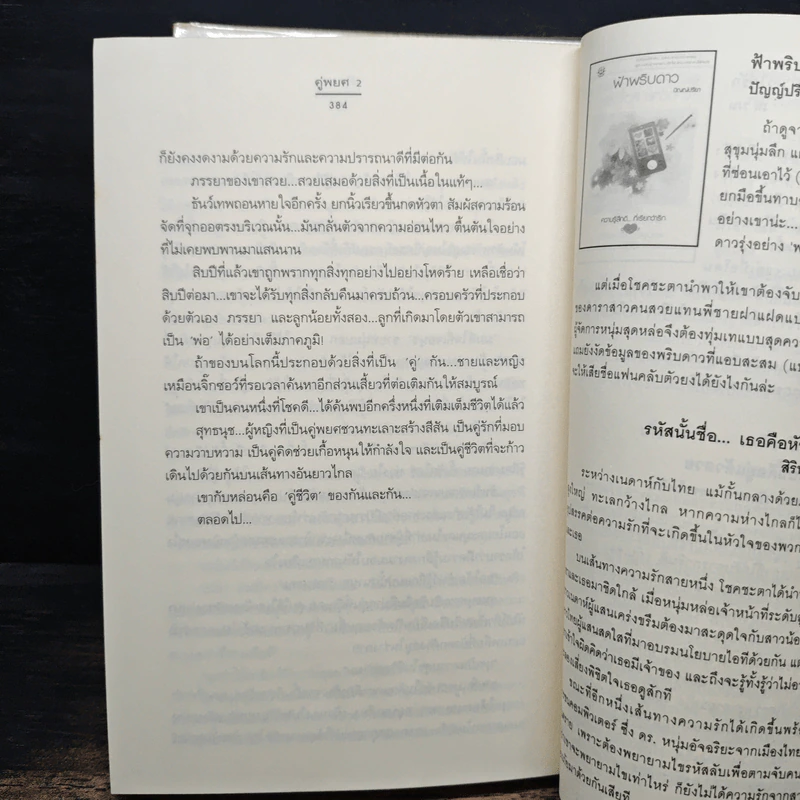 คู่พยศ 2
384
ก็ยังคงงดงามด้วยความรักและความปรารถนาดีที่มีต่อกัน
ภรรยาของเขาสวย...สวยเสมอด้วยสิ่งที่เป็นเนื้อในแท้ๆ...
ธันว์เทพถอนหายใจอีกครั้ง ยกนิ้วเรียวขึ้นกดหัวตา สัมผัสความร้อน
จัดที่จุกออตรงบริเวณนั้น...มันกลั่นตัวจากความอ่อนไหว ตื้นตันใจอย่าง
ที่ไม่เคยพบพานมาแสนนาน
สิบปีที่แล้วเขาถูกพรากทุกสิ่งทุกอย่างไปอย่างโหดร้าย เหลือเชื่อว่า
สิบปีต่อมา...เขาจะได้รับทุกสิ่งกลับคืนมาครบถ้วน...ครอบครัวที่ประกอบ
ด้วยตัวเอง ภรรยา และลูกน้อยทั้งสอง...ลูกที่เกิดมาโดยตัวเขาสามารถ
เป็น 'พ่อ' ได้อย่างเต็มภาคภูมิ!
ถ้าของบนโลกนี้ประกอบด้วยสิ่งที่เป็น 'คู่' กัน...ชายและหญิง
เหมือนจิ๊กซอว์ที่รอเวลาค้นหาอีกส่วนเสี้ยวที่ต่อเติมกันให้สมบูรณ์
เขาเป็นคนหนึ่งที่โชคดี...ได้ค้นพบอีกครึ่งหนึ่งที่เติมเต็มชีวิตได้แล้ว
สุทธนุช...ผู้หญิงที่เป็นคู่พยศชวนทะเลาะสร้างสีสัน เป็นคู่รักที่มอบ
ความวาบหวาม เป็นคู่คิดช่วยเกื้อหนุนให้กำลังใจ และเป็นคู่ชีวิตที่จะก้าว
เดินไปด้วยกันบนเส้นทางอันยาวไกล
เขากับหล่อนคือ 'คู่ชีวิต' ของกันและกัน...
ตลอดไป...
ฟ้าพริบดาว
ปัญญ์ปรียา
ความรู้สึกดี... ที่เรียกว่ารัก
ฟ้าพริบ
ปัญญ์ปรี
ถ้าดูจา
สุขุมนุ่มลึก แ
ที่ซ่อนเอาไว้ (
ยกมือขึ้นทาบ
อย่างเขาน่ะ...
ดาวรุ่งอย่าง 'พ
แต่เมื่อโชคชะตานำพาให้เขาต้องจับ
ของดาราสาวคนสวยแทนพี่ชายฝาแฝดแบ
ผู้จัดการหนุ่มสุดหล่อจึงต้องทุ่มเทแบบสุดคว
แถมยังงัดข้อมูลของพริบดาวที่แอบสะสม (แ
จะให้เสียชื่อแฟนคลับตัวยงได้ยังไงกันล่ะ
รหัสนั้นชื่อ... เธอคือหั
สิริ
ระหว่างเนดาห์กับไทย แม้กั้นกลางด้วย
ใหญ่ ทะเลกว้างไกล หากความห่างไกลก็ไ
สรรคต่อความรักที่จะเกิดขึ้นในหัวใจของพวก
เธอ
บนเส้นทางความรักสายหนึ่ง โชคชะตาได้นำ
และเธอมาชิดใกล้ เมื่อหนุ่มหล่อเจ้าหน้าที่ระดับ
เนดาห์ผู้แสนเคร่งขรึมต้องมาสะดุดใจกับสาวน้อ
ไทยผู้แสนสดใสที่มาอบรมนโยบายไอทีด้วยกัน แ
เข้าใจผิดคิดว่าเธอมีเจ้าของ และถึงจะรู้ทั้งรู้ว่าไม่อา
เสี่ยงพิชิตใจเธอดูสักที
ขณะที่อีกหนึ่งเส้นทางความรักได้เกิดขึ้นพร้อ
คอมพิวเตอร์ ซึ่ง ดร. หนุ่มอัจฉริยะจากเมืองไทย
เพราะต้องพยายามไขรหัสลับเพื่อตามจับคน
จะพยายามไขเท่าไหร่ ก็ยังไม่ได้ความรักจากสา
มาด้วยกันเสียที